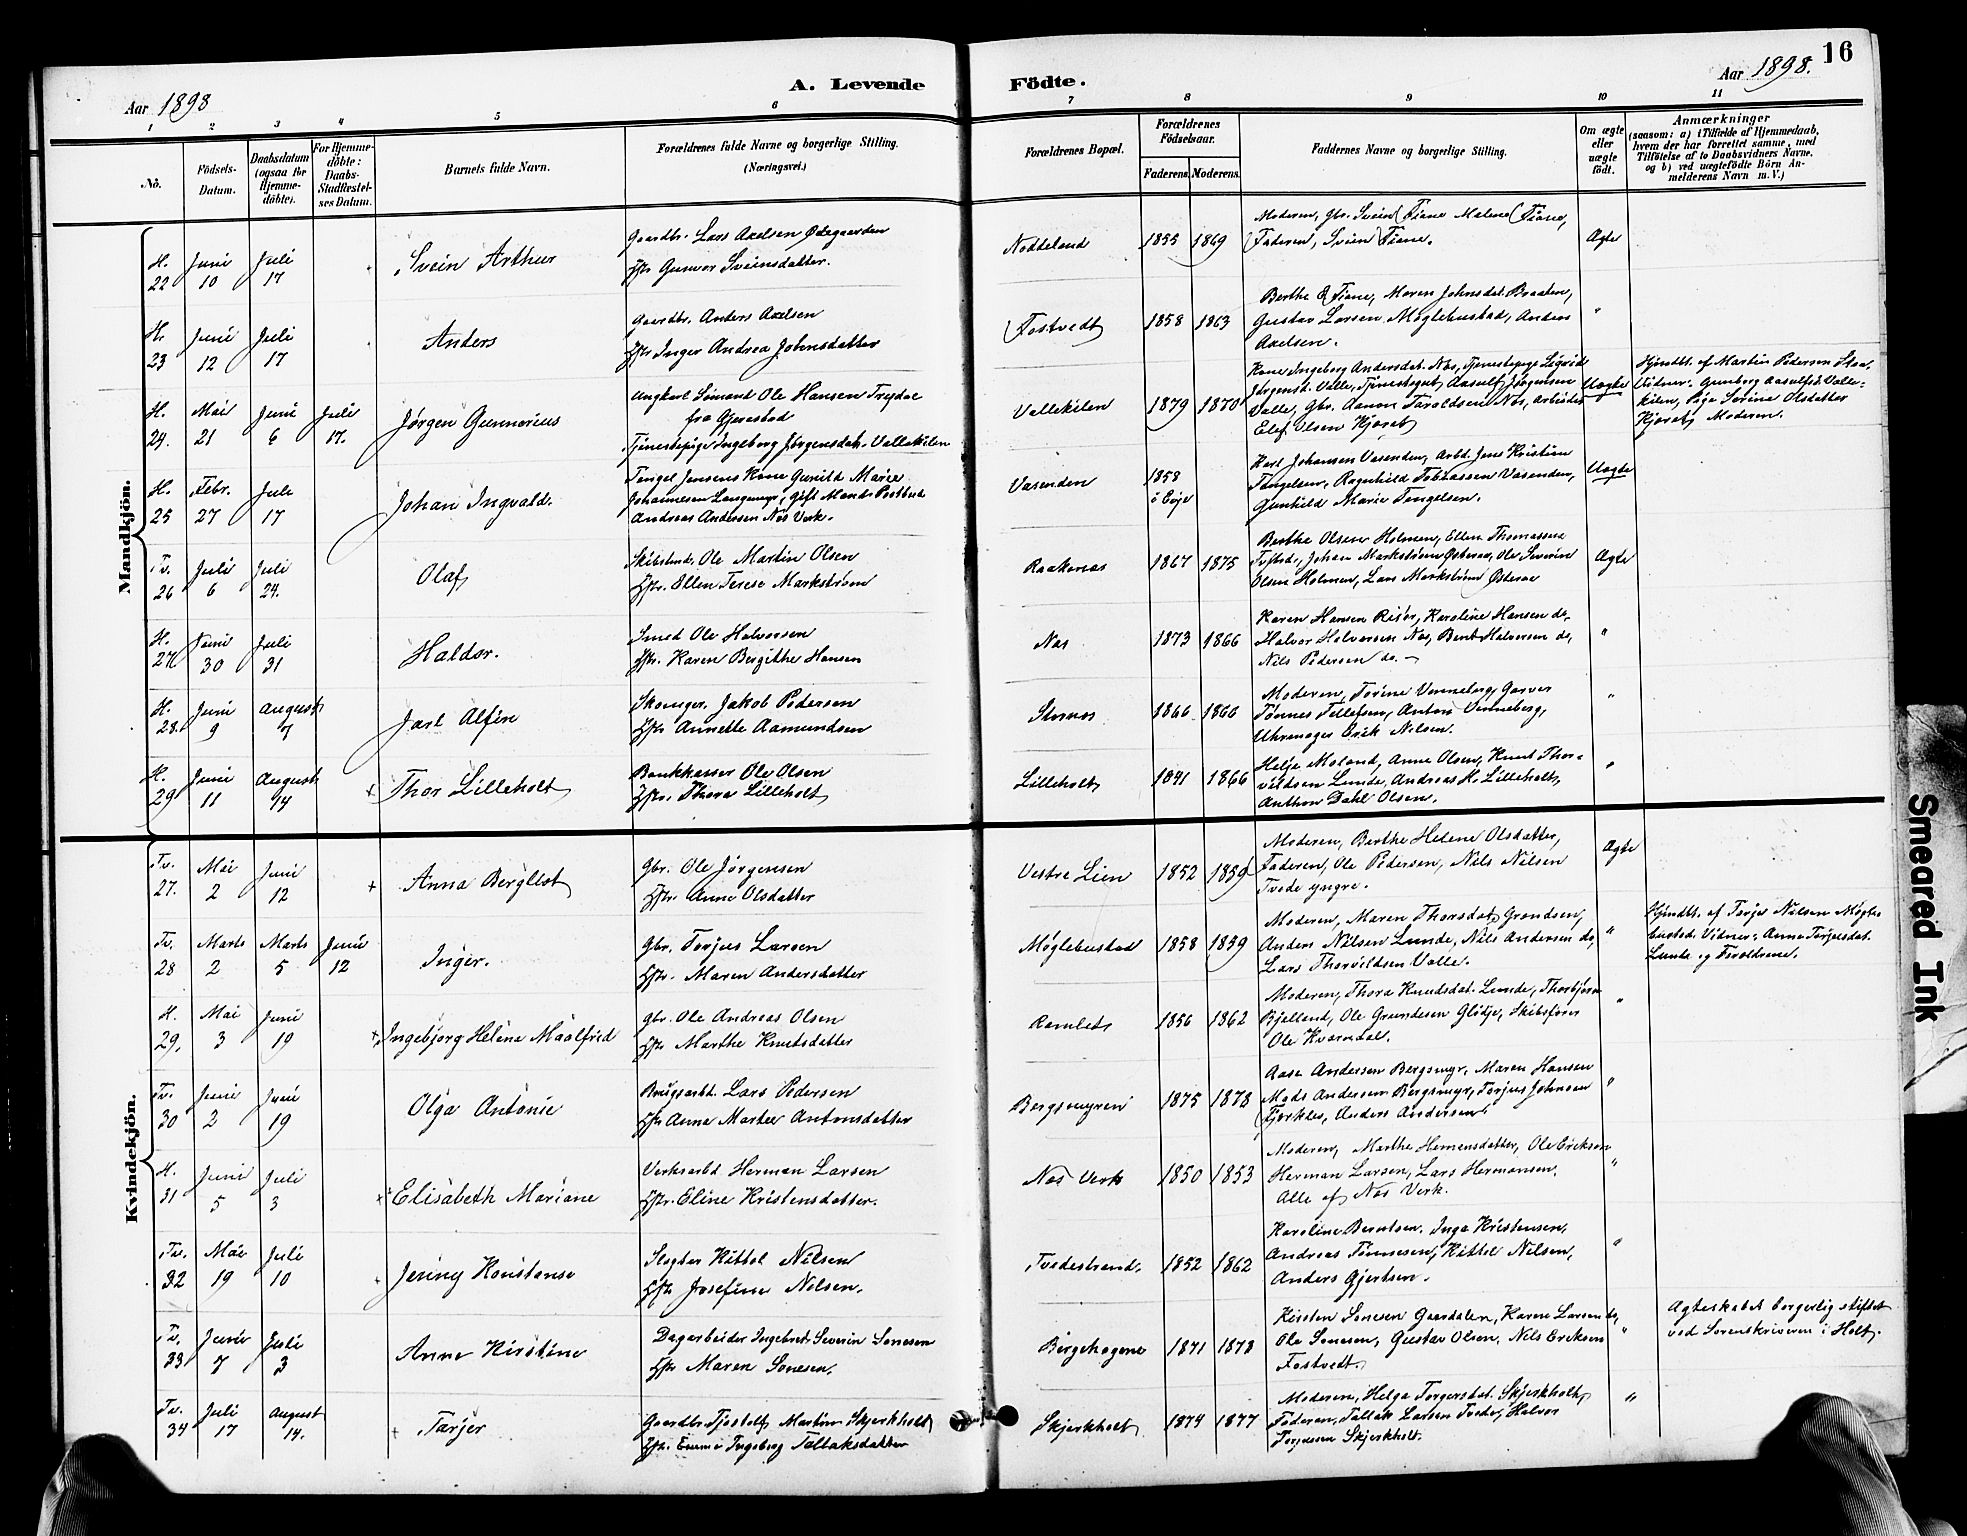 16
A. Levende Födte.
Aar 1898
Aar 1898.
1 2 3 4 5 6 7 8 9 10 11
No.
Födsels-Datum.
Daabsdatum (ogsaa for Hjemme-döbte).
For Hjemme-döbte: Daabs-Stadfæstel-ses Datum.
Barnets fulde Navn.
Forældrenes fulde Navne og borgerlige Stilling.
(Næringsvei.)
Forældrenes Bopæl.
Forældrenes Födselsaar.
Faderens. Moderens.
Faddernes Navne og borgerlige Stilling.
Om ægte eller uægte födt.
Anmærkninger
(saasom: a) i Tilfælde af Hjemmedaab, hvem der har forrettet samme, med Tilföielse af to Daabsvidners Navne, og b) ved uægtefödte Börn An-melderens Navn m. V.)
Mandkjön.
H. 22 Juni 10 Juli 17 Svein Arthur
Gaardbr. Lars Axelsen Ødegaarden
Hstr. Gunvor Sveinsdatter.
Noddeland 1855 1869
Moderen, Gbr. Svein Fiane, Malene Fiane,
Faderen, Svein Fiane.
Ægte
H. 23 Juni 12 Juli 17 Anders
Gaardbr. Anders Axelsen
Hstr. Inger Andrea Johnsdatter
Fostvedt 1858 1863
Berthe Fiane, Maren Johnsdat. Braaten,
Gustav Larsen Møglebustad, Anders
Axelsen.
"
H. 24. Mai 21 Juni 6 Juli 17. Jørgen Gunnerius
Ungkarl Sömand Ole Hansen Trydal
fra Gjerestad
Tjenestepige Ingeborg Jörgensdat. Vallekilen
Vallekilen 1879 1870
Kone Ingeborg Andersdat. Næs, Tjenestepige Sigrid
Jörgensd. Valle, Tjenestegut Aasulf Jörgensen
Valle, Gbr. Aanon Taraldsen Næs, Arbeider
Elef Olsen
Uægte
Hjmdbt. af Martin Pedersen
Vidner: Gunborg Aasulfsd. Valle-
kilen, Pige Serine Olsdatter
Moderen.
H. 25 Febr. 27 Juli 17 Johan Ingvald.
Tengel Jensens Kone Gunild Marie
Johannesen Langmyr, Gift Mand: Postbud
Andreas Andersen Næs Verk.
Vasenden 1858
i Evje
Karl Johansen Vasenden, Arbd. Jens Kristian
Tengelsen, Ragnhild Tobiassen Vasenden,
Gunhild Marie Tengelsen.
Uægte
Tv. 26 Juli 6 Juli 24. Olaf
Skibstmd. Ole Martin Olsen
Hstr. Ellen Terese Markström
Raakenes 1867 1875
Berthe Olsen Holmen, Ellen Thomassen
Tvdstrd., Johan Markström Østeraa, Ole Severin
Olsen Holmen, Lars Markström Østeraa
Ægte
H. 27 Juni 30 Juli 31 Haldor.
Smed Ole Halvorsen
Hstr. Karen Bergithe Hansen
Næs 1873 1866
Karen Hansen Risør, Karoline Hansen do,
Halvor Halvorsen Næs, Bent Halvorsen do,
Nils Pedersen do.
"
H. 28. Juni 9 August 7 Jarl Alfin
Skomger. Jakob Pedersen
Hstr. Annette Aamundsen
Stornes 1866 1866
Moderen, Torine Venneberg, Garver
Tönnes Tellefsen, Anton Venneberg,
Uhrmager Erik Nilsen.
"
H. 29 Juni 11 August 14 + Thor Lilleholt
Bankkasser Ole Olsen
Hstr. Thora Lilleholt
Lilleholt 1841 1866
Helje Moland, Anne Olsen, Knut Thor-
vildsen Lunde, Andreas H. Lilleholt,
Anthon Dahl Olsen.
"
Kvindekjön.
Tv. 27. Mai 2 Juni 12 + Anna Bergliot
Gbr. Ole Jörgensen
Hstr. Anne Olsdatter
Vestre Lien 1852 1859
Moderen, Berthe Helene Olsdatter,
Faderen, Ole Pedersen, Nils Nilsen
Tvede yngre.
Ægte
Tv. 28 Marts 2 Marts 5 Juni 12 Inger.
Gbr. Torjus Larsen
Hstr. Maren Andersdatter
Møglebustad 1858 1859
Moderen, Maren Thorsdat. Grendsen,
Anders Nilsen Lunde, Nils Andersen do,
Lars Thorvildsen Valle.
"
Hjmdbt. af Terje Nilsen Mögle-
bustad. Vidner: Anne Terjusdat.
Lunde og Forældrene.
H. 29, Mai 3 Juni 19 + Ingebjörg Helene Maalfrid
gbr. Ole Andreas Olsen
Hstr. Marthe Knutsdatter
Ramlets 1856 1862
Moderen, Thora Knudsdat. Lunde, Thorbjørn
Bjelland, Ole Grundesen Glödje, Skibsförer
Ole Kvarndal.
"
Tv. 30 Juni 2 Juni 19 Olga Antonie
Brugsarbd. Lars Pedersen
Hstr. Anna Martea Antonsdatter
Bergsmyren 1875 1878
Aase Andersen Bergsmyr, Maren Hansen
Mads Andersen Bergsmyr, Torjus Johnsen
Anders Andersen
"
H. 31 Juni 5 Juli 3 + Elisabeth Mariane
Verksarbd. Herman Larsen
Hstr. Eline Kristensdatter.
Næs Verk 1850 1853
Moderen, Marthe Hermansdatter, Ole Eriksen
Herman Larsen, Lars Hermansen.
Alle af Næs Verk.
"
Tv. 32 Mai 19 Juli 10 Jenny Konstanse
Slagter Kittel Nilsen
Hstr. Josefine Nilsen.
Tvedestrand. 1852 1862
Karoline Berntsen, Inga Kristensen,
Andreas Tönnesen, Kittel Nilsen,
Anders Gjertsen.
"
Tv. 33 Juni 7 Juli 3 Anne Kirstine
Dagarbeider Ingebret Severin Sonesen
Hstr. Maren Sonesen.
Bergehagene 1871 1873
Kirsten Sonesen Gaasdalen, Karen Larsen do,
Ole Sonesen, Gustav Olsen, Nils Eriksen
Fostvedt.
"
Ægteskabet borgerlig stiftet
ved Sorenskriveren i Holt.
Tv. 34 Juli 17 August 14. + Tarjer
Gaardbr. Tjøstolf Martin Skjerkholt
Hstr. Emma Ingeborg Tallaksdatter
Skjerkholt 1874 1877
Moderen, Helga Torgersdat. Skjerkholt,
Faderen, Tallak Larsen Tveder, Halvor
Torjussen Skjerkholt.
"
Smeared Ink